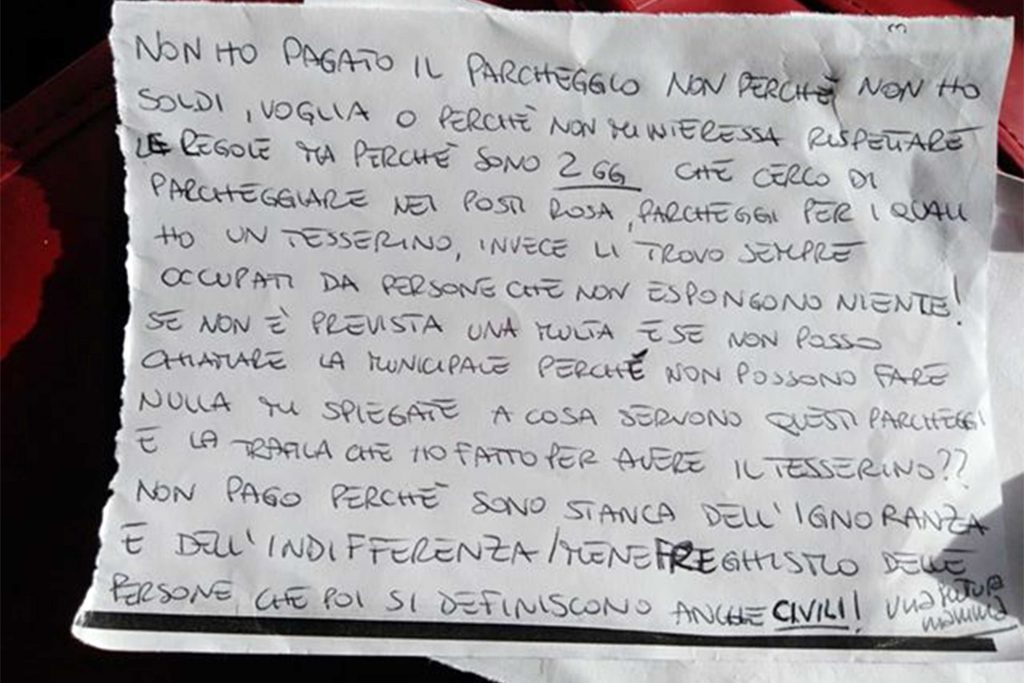 NON HO PAGATO IL PARCHEGGIO NON PERCHÈ NON HO
SOLDI, VOGLIA O PERCHÈ NON MI INTERESSA RISPETTARE
LE REGOLE MA PERCHÈ SONO 2 GG CHE CERCO DI
PARCHEGGIARE NEI POSTI ROSA, PARCHEGGI PER I QUALI
HO UN TESSERINO, INVECE LI TROVO SEMPRE
OCCUPATI DA PERSONE CHE NON ESPONGONO NIENTE!
SE NON È PREVISTA UNA MULTA E SE NON POSSO
CHIAMARE LA MUNICIPALE PERCHÉ NON POSSONO FARE
NULLA MI SPIEGATE A COSA SERVONO QUESTI PARCHEGGI
E LA TRAFILA CHE HO FATTO PER AVERE IL TESSERINO??
NON PAGO PERCHÈ SONO STANCA DELL'IGNORANZA
E DELL'INDIFFERENZA/MENEFREGHISMO DELLE
PERSONE, CHE POI SI DEFINISCONO ANCHE CIVILI!
una futura
mamma